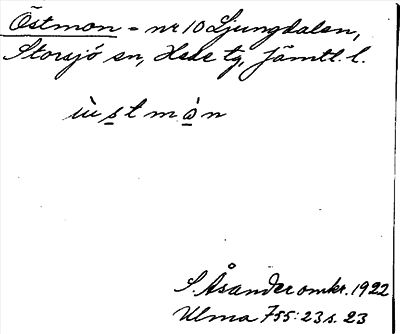 Östmon = nr 10 Ljungdalen,
Storsjö sn, Hede tg, Jämtl. l.
ùistmòn
S. Åsander omkr. 1922
Ulma 755:23 s. 23